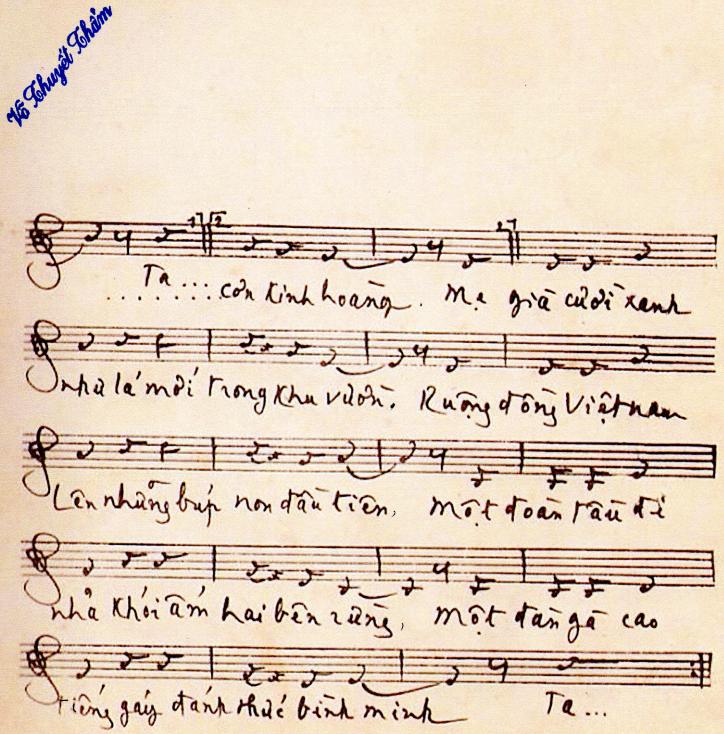 Võ Thuyết Thẩm
1 2 2
Ta ........ cơn kinh hoàng. Mẹ già cười xanh
như lá mới trong khu vườn. Ruộng đồng Việt nam
Lên những búp non đầu tiên, một đoàn tàu đi
nhả khói ấm hai bên rừng, một đàn gà cao
tiếng gáy đánh thức bình minh Ta...